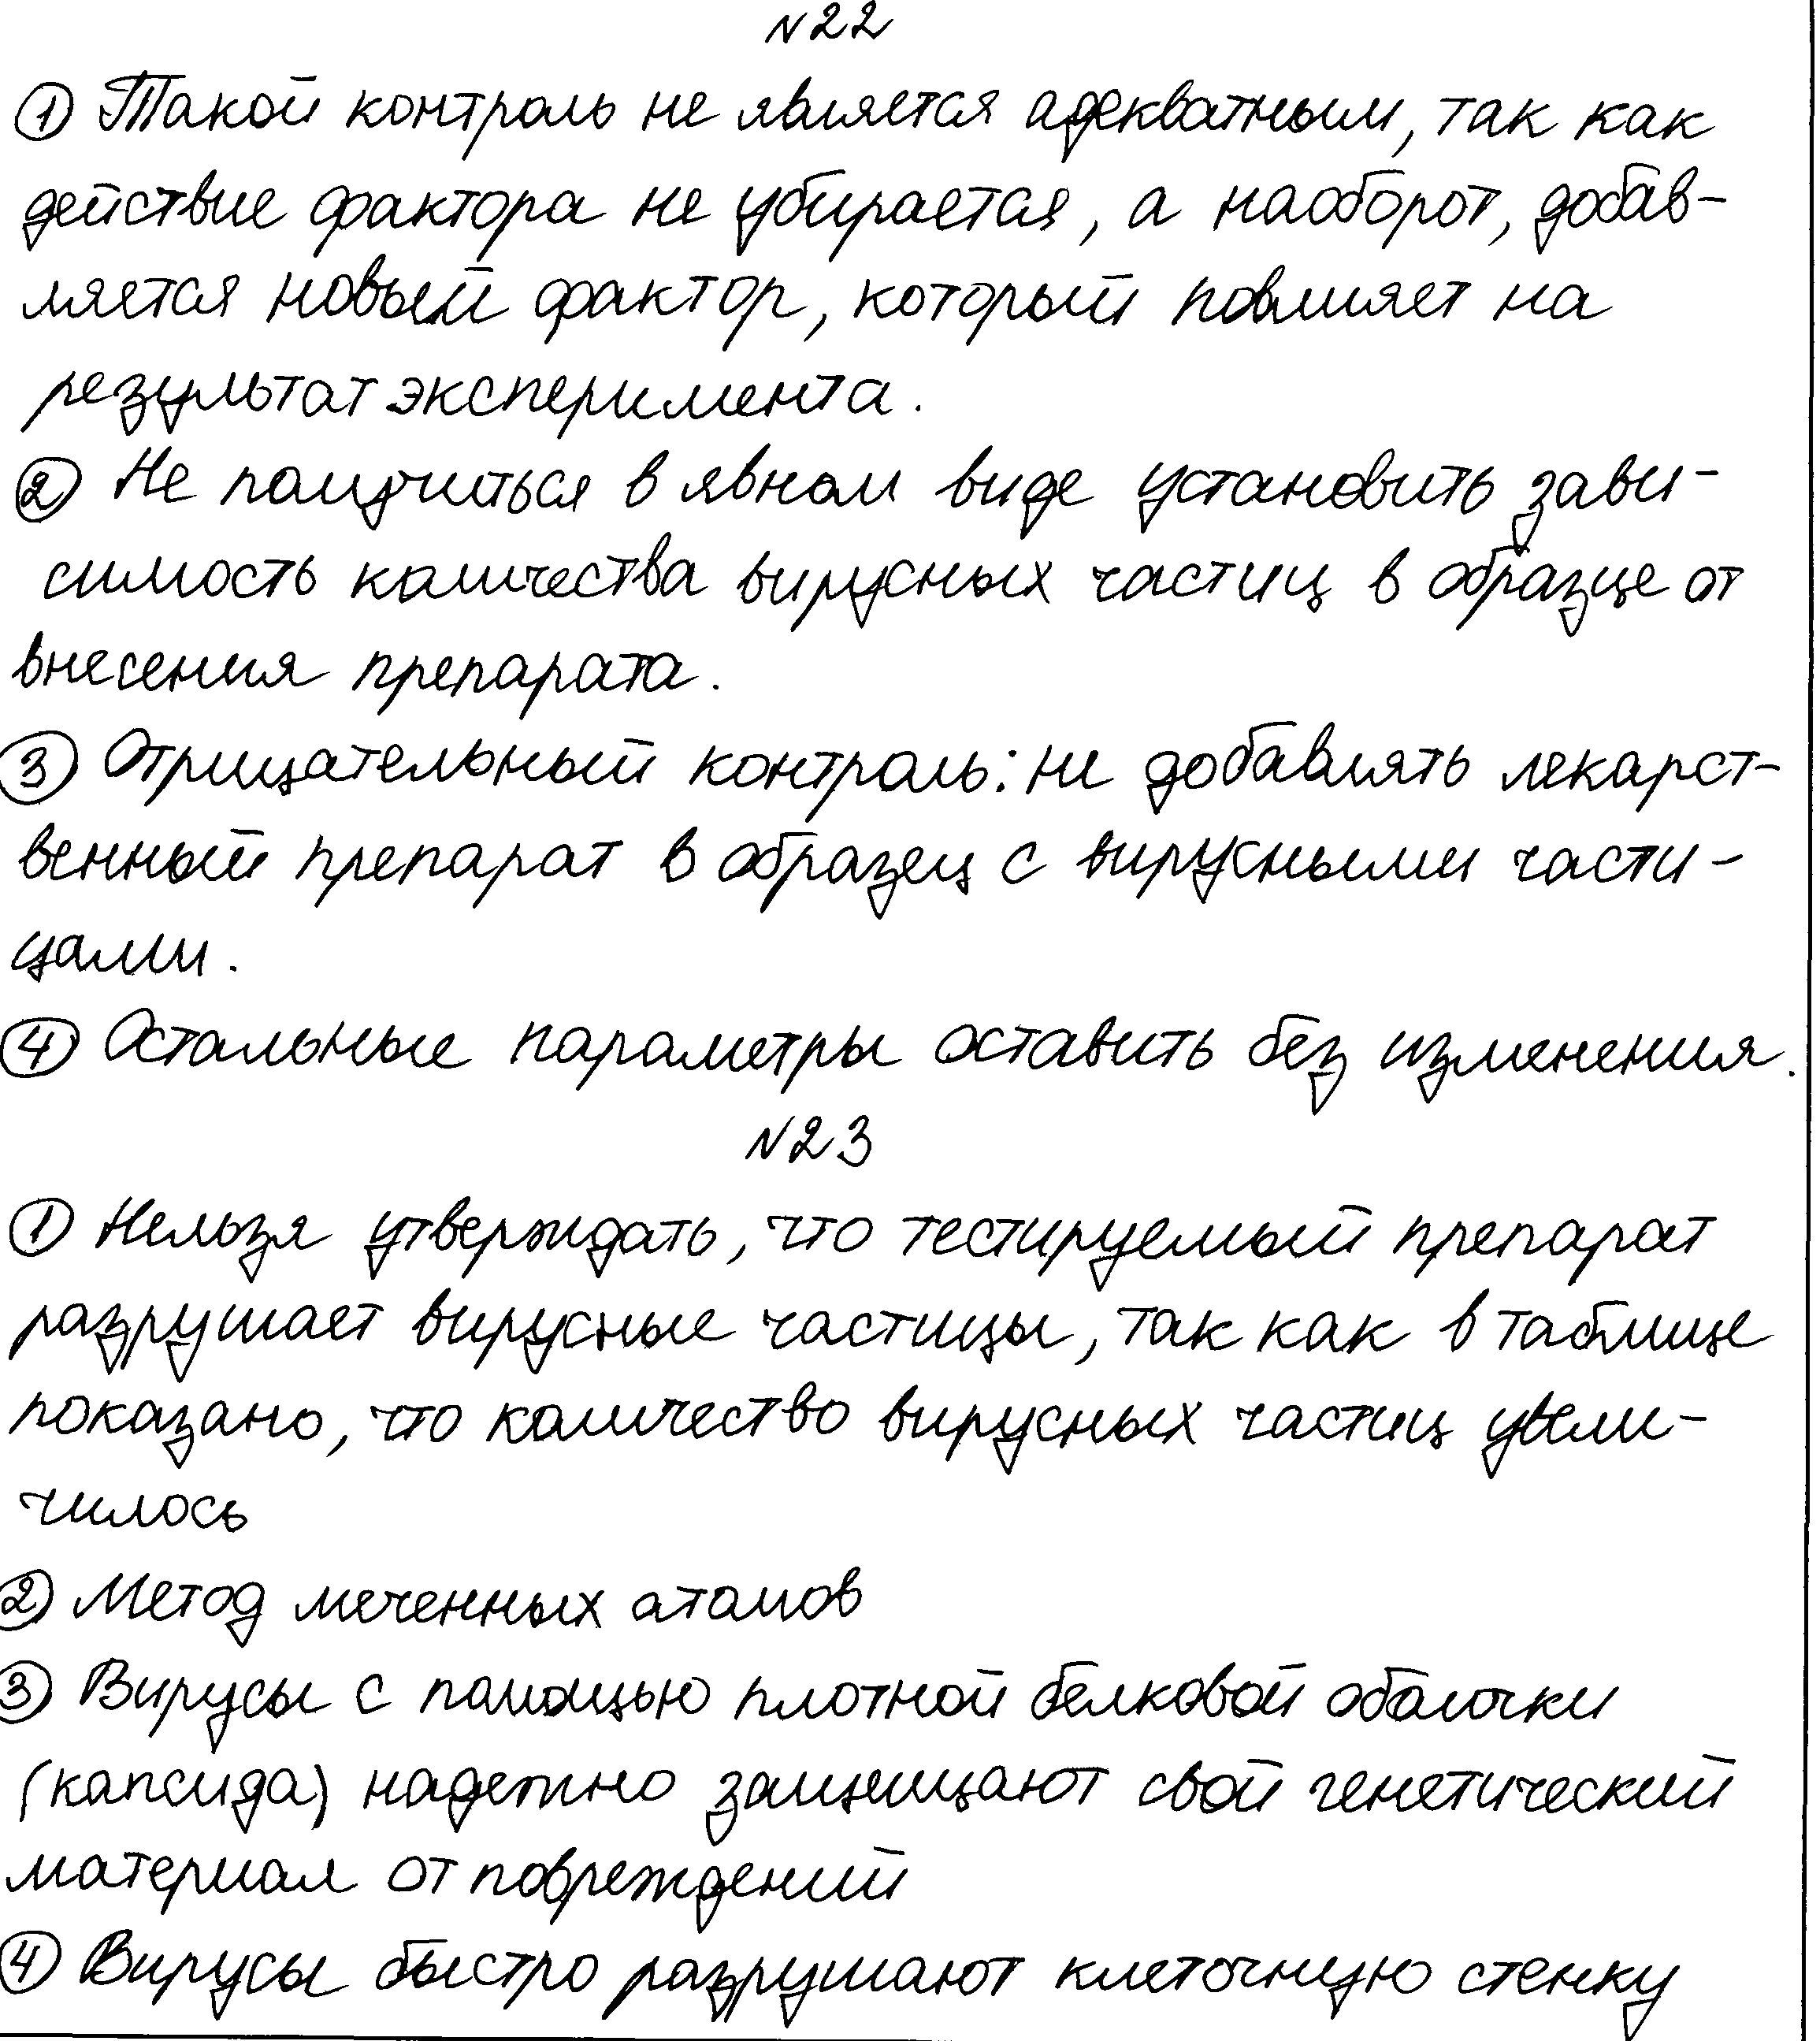 №22
① Такой контроль не является адекватным, так как
действие фактора не убирается, а наоборот, добав-
ляется новый фактор, который повлияет на
результат эксперимента.
② Не получиться в явном виде установить зави-
симость количества вирусных частиц в образце от
внесения препарата.
③ Отрицательный контроль: не добавлять лекарст-
венный препарат в образец с вирусными части-
цами.
④ Остальные параметры оставить без изменения.
№23
① Нельзя утверждать, что тестируемый препарат
разрушает вирусные частицы, так как в таблице
показано, что количество вирусных частиц увели-
чилось
② Метод меченных атомов
③ Вирусы с помощью плотной белковой оболочки
(капсида) надежно защещают свой генетический
материал от повреждений
④ Вирусы быстро разрушают клеточную стенку